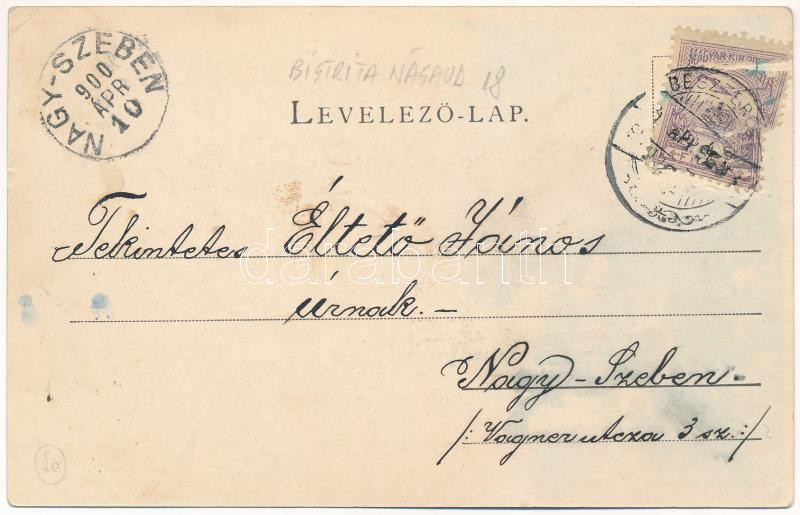 NAGY-SZEBEN
900
APR
10
BISTRITA NĂSĂUD 18
LEVELEZŐ-LAP.
MAGYAR KIR. PO
BESZ
Tekintetes Éltető János
úrnak.-
Nagy-Szeben.
/: Vagner utcza 3 sz. :/
darabanth